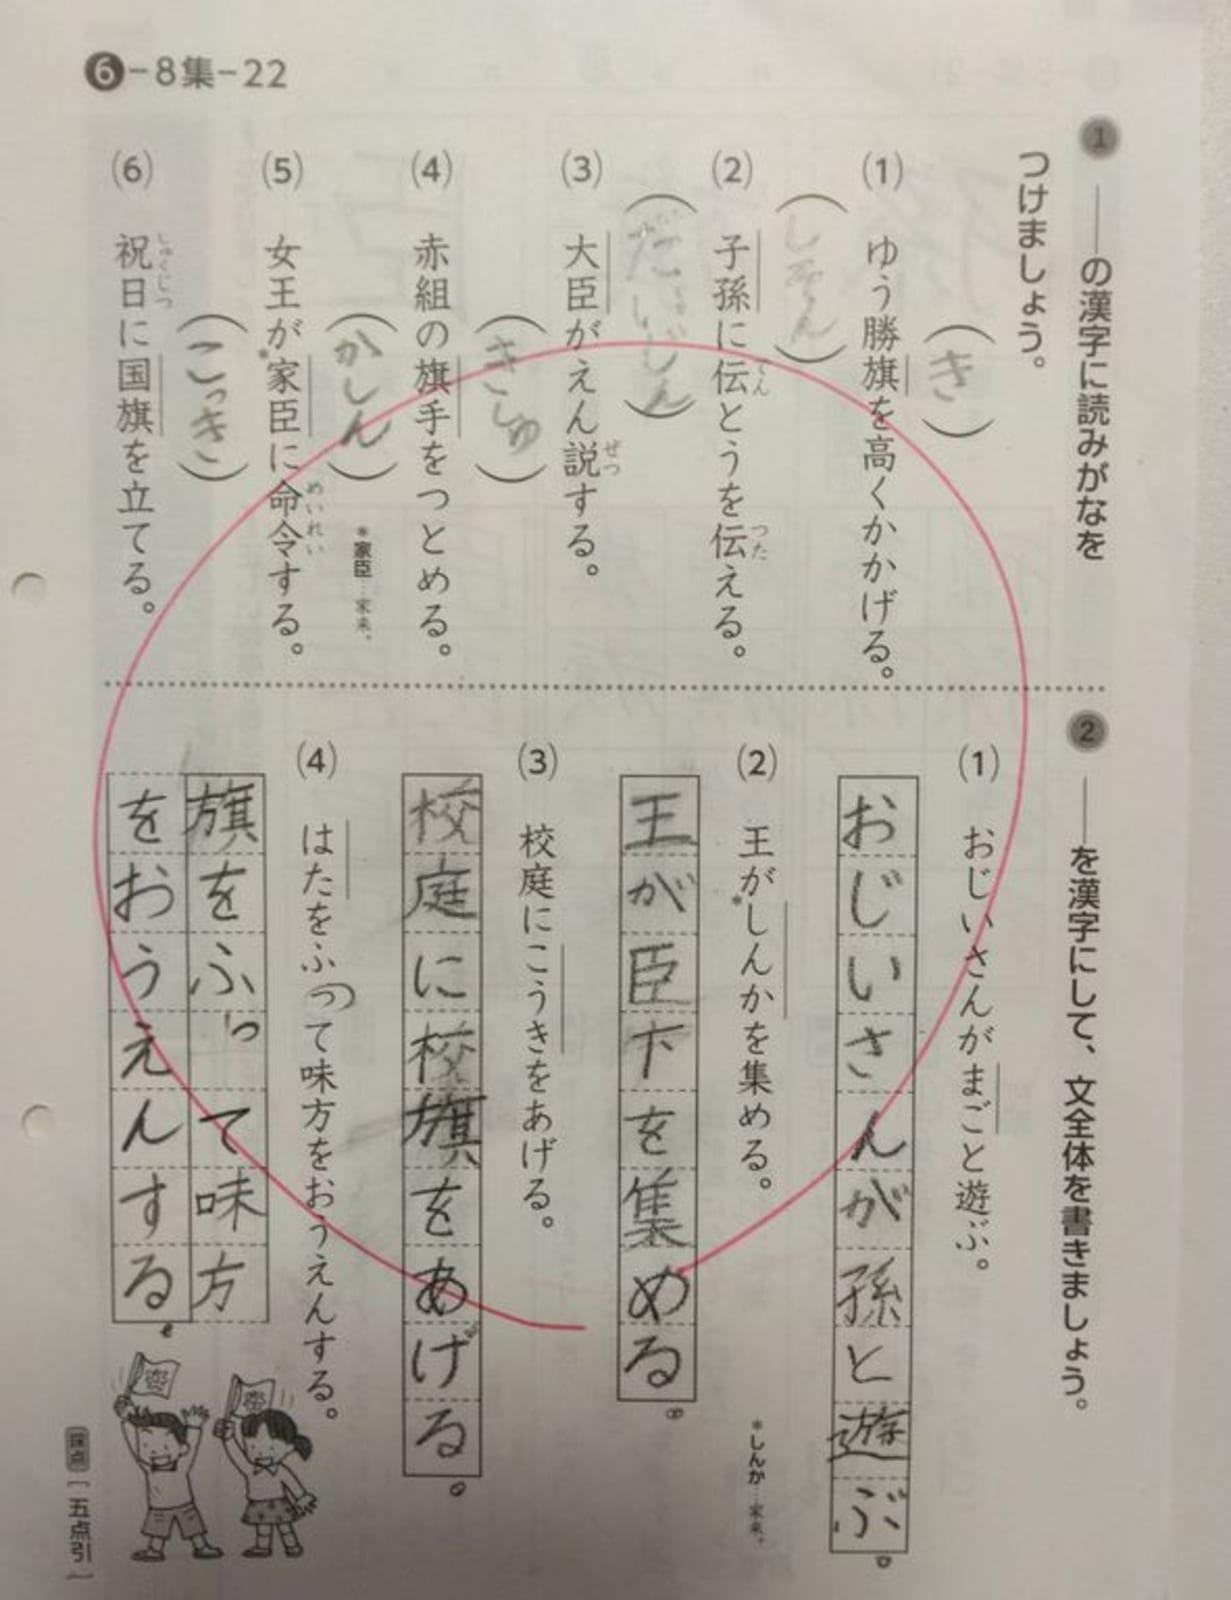 ❻-8集-22
❶ ──の漢字に読みがなを
つけましょう。
(1) ゆう勝旗を高くかかげる。
(き)
(2) 子孫に伝とうを伝える。
でん
つた
(しそん)
(3) 大臣がえん説する。
ぜつ
(だいじん)
(4) 赤組の旗手をつとめる。
(きしゅ)
(5) 女王が*家臣に命令する。
めいれい
(かしん)
*家臣…家来。
(6) 祝日に国旗を立てる。
しゅくじつ
(こっき)
❷ ──を漢字にして、文全体を書きましょう。
(1) おじいさんがまごと遊ぶ。
おじいさんが孫と遊ぶ。
(2) 王が*しんかを集める。
王が臣下を集める。
*しんか…家来。
(3) 校庭にこうきをあげる。
校庭に校旗をあげる。
(4) はたをふって味方をおうえんする。
旗をふって味方
をおうえんする。
採点[五点引]